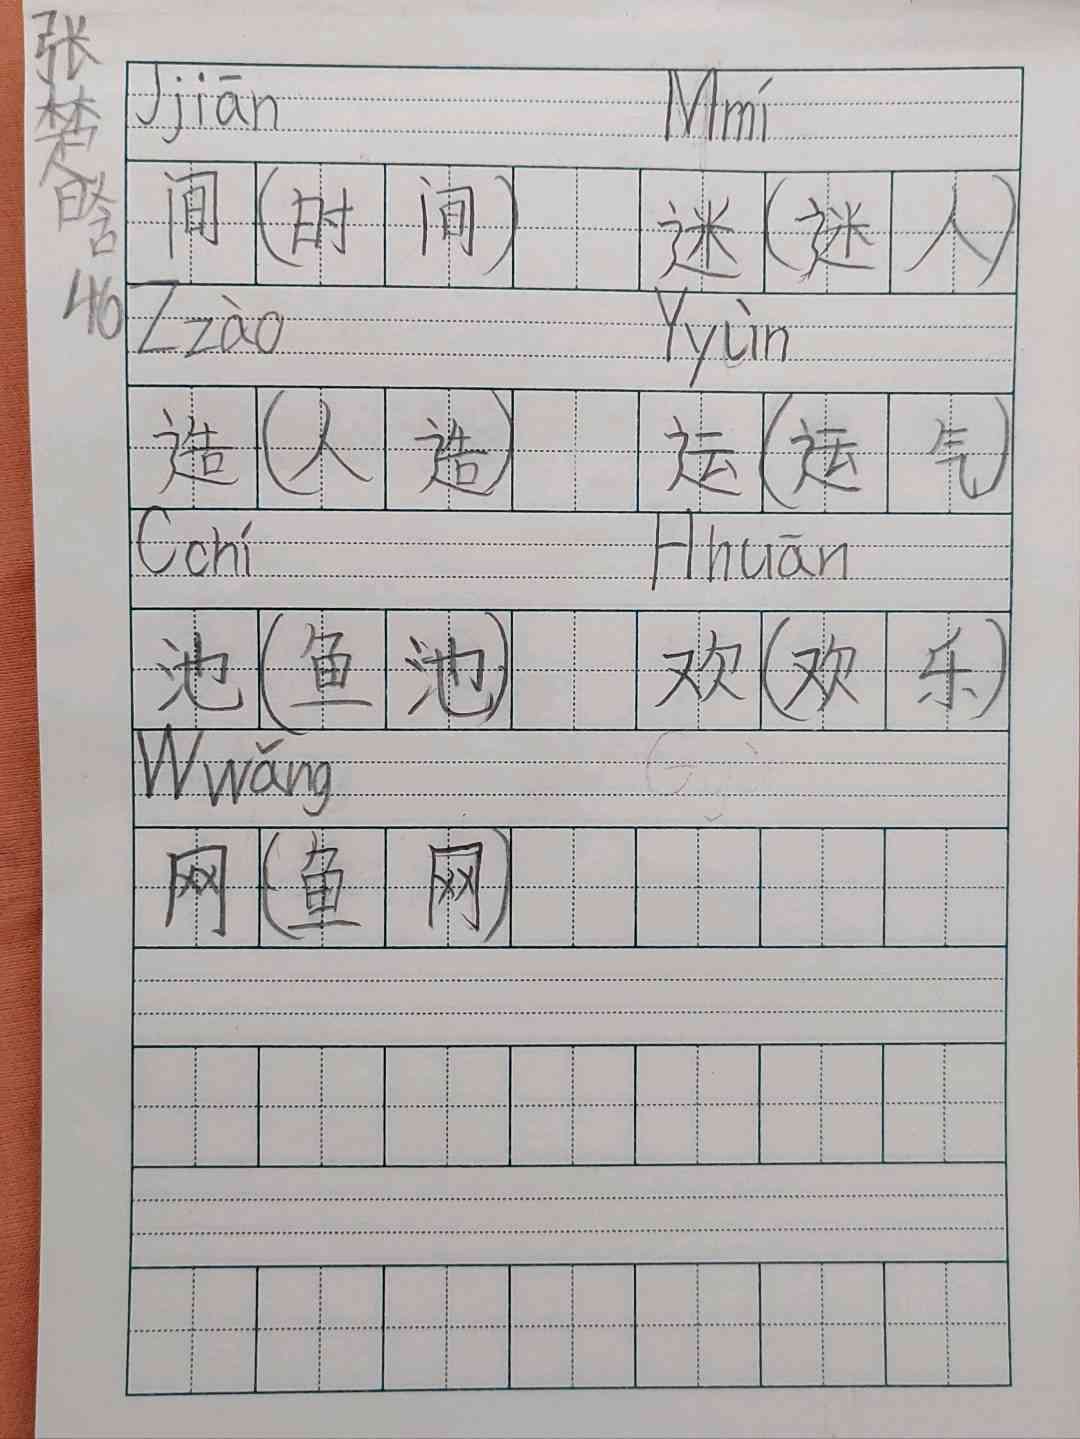 张楚晗
46
Jjiān Mmí
间(时间) 迷(迷人)
Zzào Yyùn
造(人造) 运(运气)
Cchí Hhuān
池(鱼池) 欢(欢乐)
Wwǎng
网(鱼网)